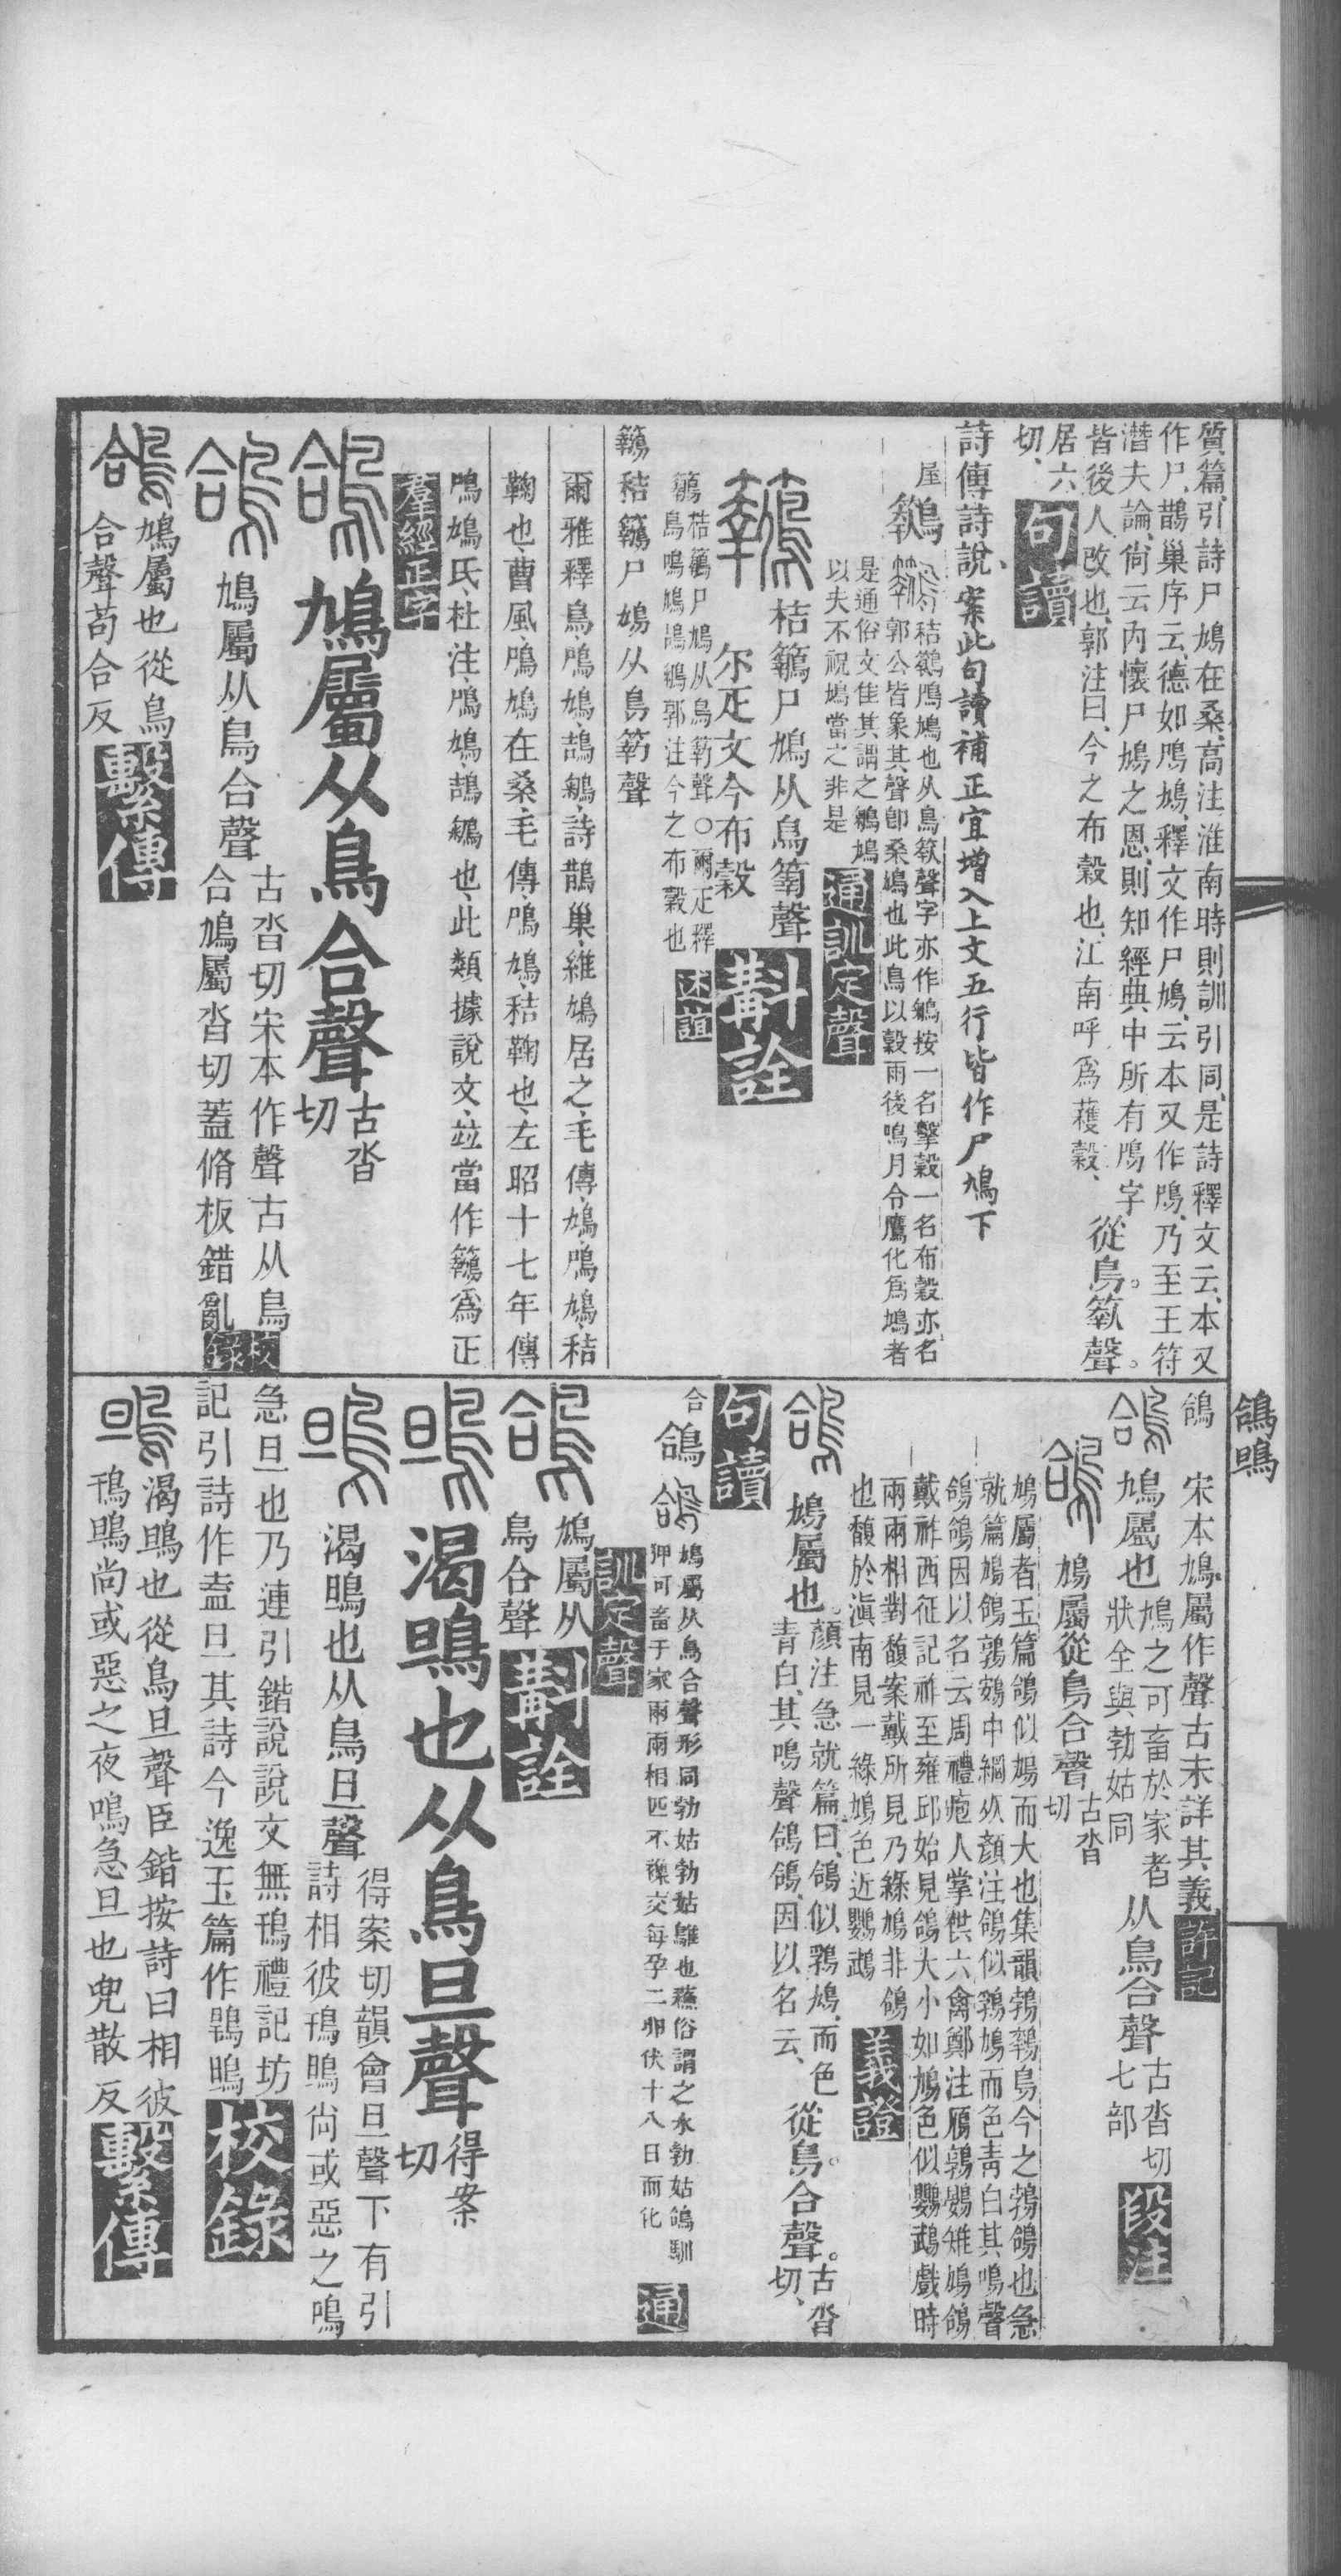 質篇、引詩尸鳩在桑、高注淮南時則訓引同、是詩釋文云、本又
作尸、鵲巢序云、德如鳲鳩、釋文作尸鳩、云本又作鳲、乃至王符
潛夫論、尙云內懷尸鳩之恩、則知經典中所有鳲字、
皆後人改也、郭注曰、今之布穀也、江南呼爲穫穀、
從鳥。𥷚聲。
居六
切、
句讀
詩傳詩說、案此句讀補正宜增入上文五行皆作尸鳩下
屋
秸鵴鳲鳩也从鳥𥷚聲字亦作鵴按一名擊穀一名布穀亦名
郭公皆象其聲卽桑鳩也此鳥以穀雨後鳴月令鷹化爲鳩者
是通俗文佳其謂之鵴鳩
以夫不祝鳩當之非是
通訓定聲
尸鳩从鳥𥷚聲
尔疋文今布穀
斠詮
尸鳩从鳥𥷚聲○爾疋釋
鳥鳴鳩鴶鵴郭注今之布穀也
述誼
爾雅釋鳥、鳲鳩、鴶鵴、詩鵲巢、維鳩居之、毛傳、鳩、鳲鳩、秸
鞠也、曹風、鳲鳩在桑、毛傳、鳲鳩、秸鞠也、左昭十七年傳
鳲鳩氏、杜注、鳲鳩、鴶鵴也、此類據說文、竝當作鵴爲正
羣經正字
鴿
鳩屬从鳥合聲
古沓
切
鴿
鳩屬从鳥合聲
古沓切宋本作聲古从鳥
合鳩屬沓切蓋脩板錯亂
校錄
鴿
鳩屬也從鳥
合聲苟合反
繫傳
鴿鴠
鴿
宋本鳩屬作聲古未詳其義
許記
鴿
鳩屬也
鳩之可畜於家者
狀全與勃姑同
从鳥合聲
古沓切
七部
段注
鴿
鳩屬從鳥合聲
古沓
切
鳩屬者玉篇鴿似鳩而大也集韻鵓鵓鳥今之鵓鴿也急
就篇鳩鴿鶉鴳中網死顏注鴿似鶉鳩而色靑白其鳴聲
鴿鴿因以名云周禮庖人掌供六禽鄭注鴈鶉鷃雉鳩鴿
戴祚西征記祚至雍邱始見鴿大小如鳩色似鸚鵡戲時
兩兩相對馥案戴所見乃綠鳩非鴿
也馥於滇南見一綠鳩色近鸚鵡
義證
鴿
鳩屬也
顏注急就篇曰、鴿似鶉鳩、而色
青白、其鳴聲鴿鴿、因以名云、
從鳥。合聲。
古沓
切、
句讀
合
鴿
鳩屬从鳥合聲形同勃姑勃姑雛也蘇俗謂之水勃姑鴿馴
狎可畜于家兩兩相匹不襍交每孕二卵伏十八日而化
通訓定聲
鴿
鳩屬从
鳥合聲
斠詮
鴠
渴鴠也从鳥旦聲
得案
切
鴠
渴鴠也从鳥旦聲
得案切韻會旦聲下有引
詩相彼鳱鴠尙或惡之鳴
急旦也乃連引鍇說說文無鳱禮記坊
記引詩作盍旦其詩今逸玉篇作鶡鴠
校錄
鴠
渴鴠也從鳥旦聲臣鍇按詩曰相彼
鳱鴠尙或惡之夜鳴急旦也兜散反
繫傳